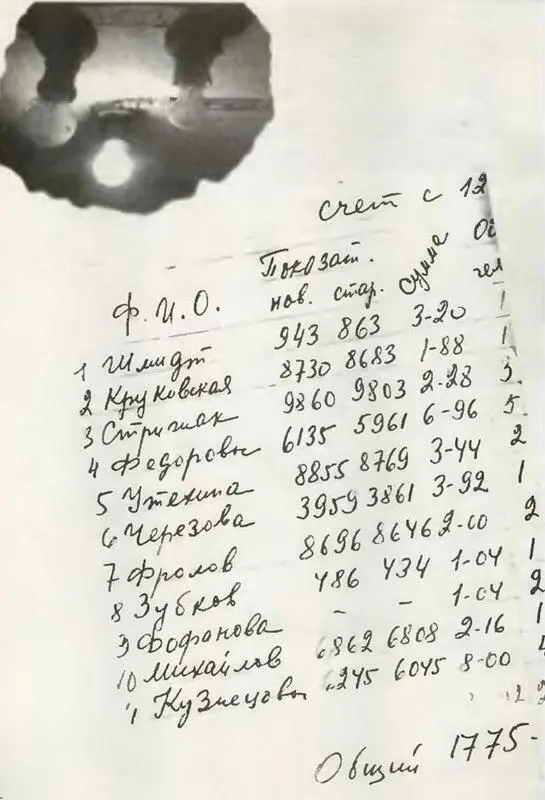 счет с 12
Ф.И.О. Показат. сумма
нов. стар. чел
1 Шмидт 943 863 3-20 1
2 Круковская 8730 8683 1-88 1
3 Стригнак 9860 9803 2-28 3.
4 Федоровы 6135 5961 6-96 5.
5 Утехина 8855 8769 3-44 2
6 Черезова 3959 3861 3-92 1
7 Фролов 8696 8646 2-00 2
8 Зубков 486 434 1-04 1
9 Фофанова - - 1-04 2
10 Михайлов 6862 6808 2-16 1
11 Кузнецовы 6245 6045 8-00
Общий 1775-